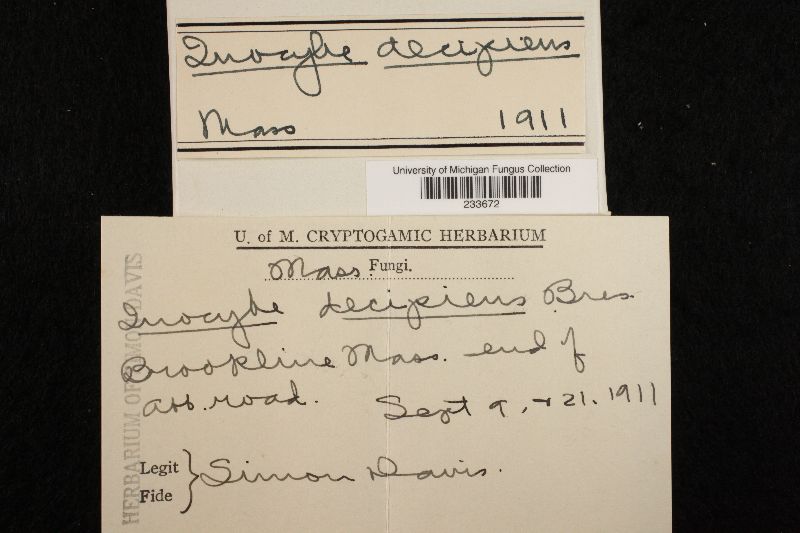 Inocybe decipiens
Mass 1911
University of Michigan Fungus Collection
233672
U. of M. CRYPTOGAMIC HERBARIUM
Mass Fungi.
Inocybe decipiens Bres.
Brookline Mass. end of
rood. Sept 9, + 21. 1911
Legit
Fide } Simon Davis.
HERBARIUM OF SIMON DAVIS